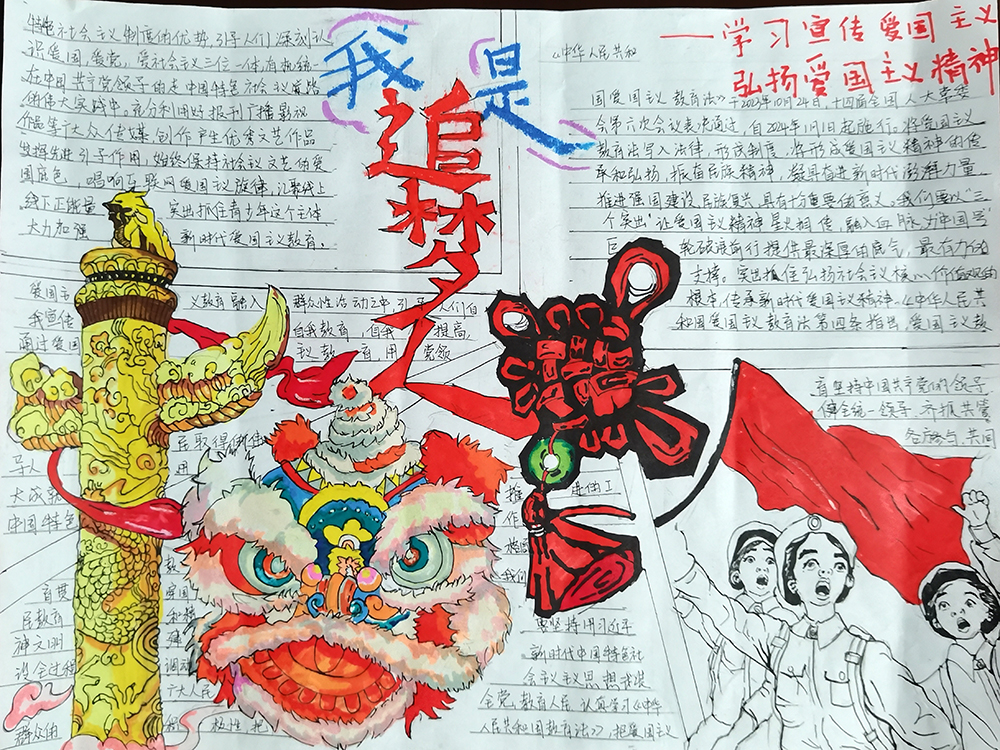 我是
追梦人
——学习宣传爱国主义
弘扬爱国主义精神
特色社会主义制度的优势,引导人们深刻认
识爱国、爱党、爱社会主义三位一体有机统一
在中国共产党领导的走中国特色社会主义道路
的伟大实践中。充分利用好报刊广播影视
作品等大众传媒创作产生优秀文艺作品
发挥先进引导作用,始终保持社会主义文艺的爱
国底色,唱响互联网爱国主义旋律,汇聚线上
线下正能量 突出抓住青少年这个主体
大力加强 新时代爱国主义教育。
《中华人民共和
国爱国主义教育法》于2023年10月24日,十四届全国人大常委
会第六次会议表决通过,自2024年1月1日起施行。将爱国主义
教育法写入法律,形成制度,将形成爱国主义精神的传
承和弘扬,振奋民族精神,凝具有进新时代澎湃力量,
推进强国建设,民族复兴,具有十分重要的意义。我们要以"三
个突出"让爱国主义精神星火相传,融入血脉,为中国号
巨 轮破浪前行提供最深厚的底气,最有力的
支撑。突出抓住弘扬社会主义核心价值观的
根本,传承新时代爱国主义精神。《中华人民共
和国爱国主义教育法第四条指出,爱国主义教
育坚持中国共产党的领导
统一领导,齐抓共管
各方参与,共同
爱国主 义教育融入 群众性活动之中,引导 人们自
我宣传 自我教育,自我 提高,
通过爱国 主义教 育,用 党领
导人 民取得的伟
大成就
中国特色
推 是的工
作
我们
要坚持用习近平
新时代中国特色社
会主义主义思想武装
全党,教育人民,认真学习《中华
人民共和国教育法》》,把爱国主义
首贯
民教育
神文明
设全过程
群众的
爱国
和精
建
调动
广大人民
积 极性,把